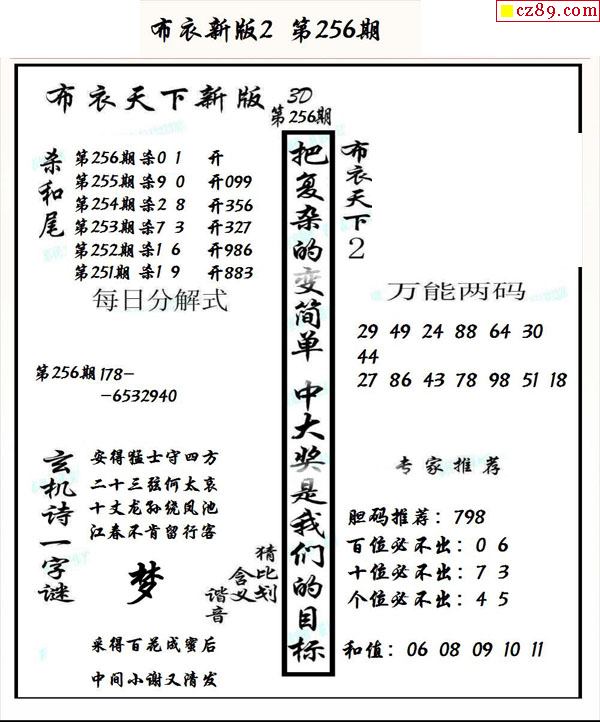 cz89.com
布衣新版2 第256期
布衣天下新版 3D
第256期
杀和尾
第256期杀0 1 开
第255期杀9 0 开099
第254期杀2 8 开356
第253期杀7 3 开327
第252期杀1 6 开986
第251期杀1 9 开883
每日分解式
第256期178-
-6532940
玄机诗一字谜
安得猛士守四方
二十三弦何太哀
十丈龙孙绕凤池
江春不肯留行客
梦
猜比划
含义
谐音
采得百花成蜜后
中间小谢又清发
把复杂的变简单 中大奖是我们的目标
布衣天下2
万能两码
29 49 24 88 64 30
44
27 86 43 78 98 51 18
专家推荐
胆码推荐：798
百位必不出：0 6
十位必不出：7 3
个位必不出：4 5
和值：06 08 09 10 11